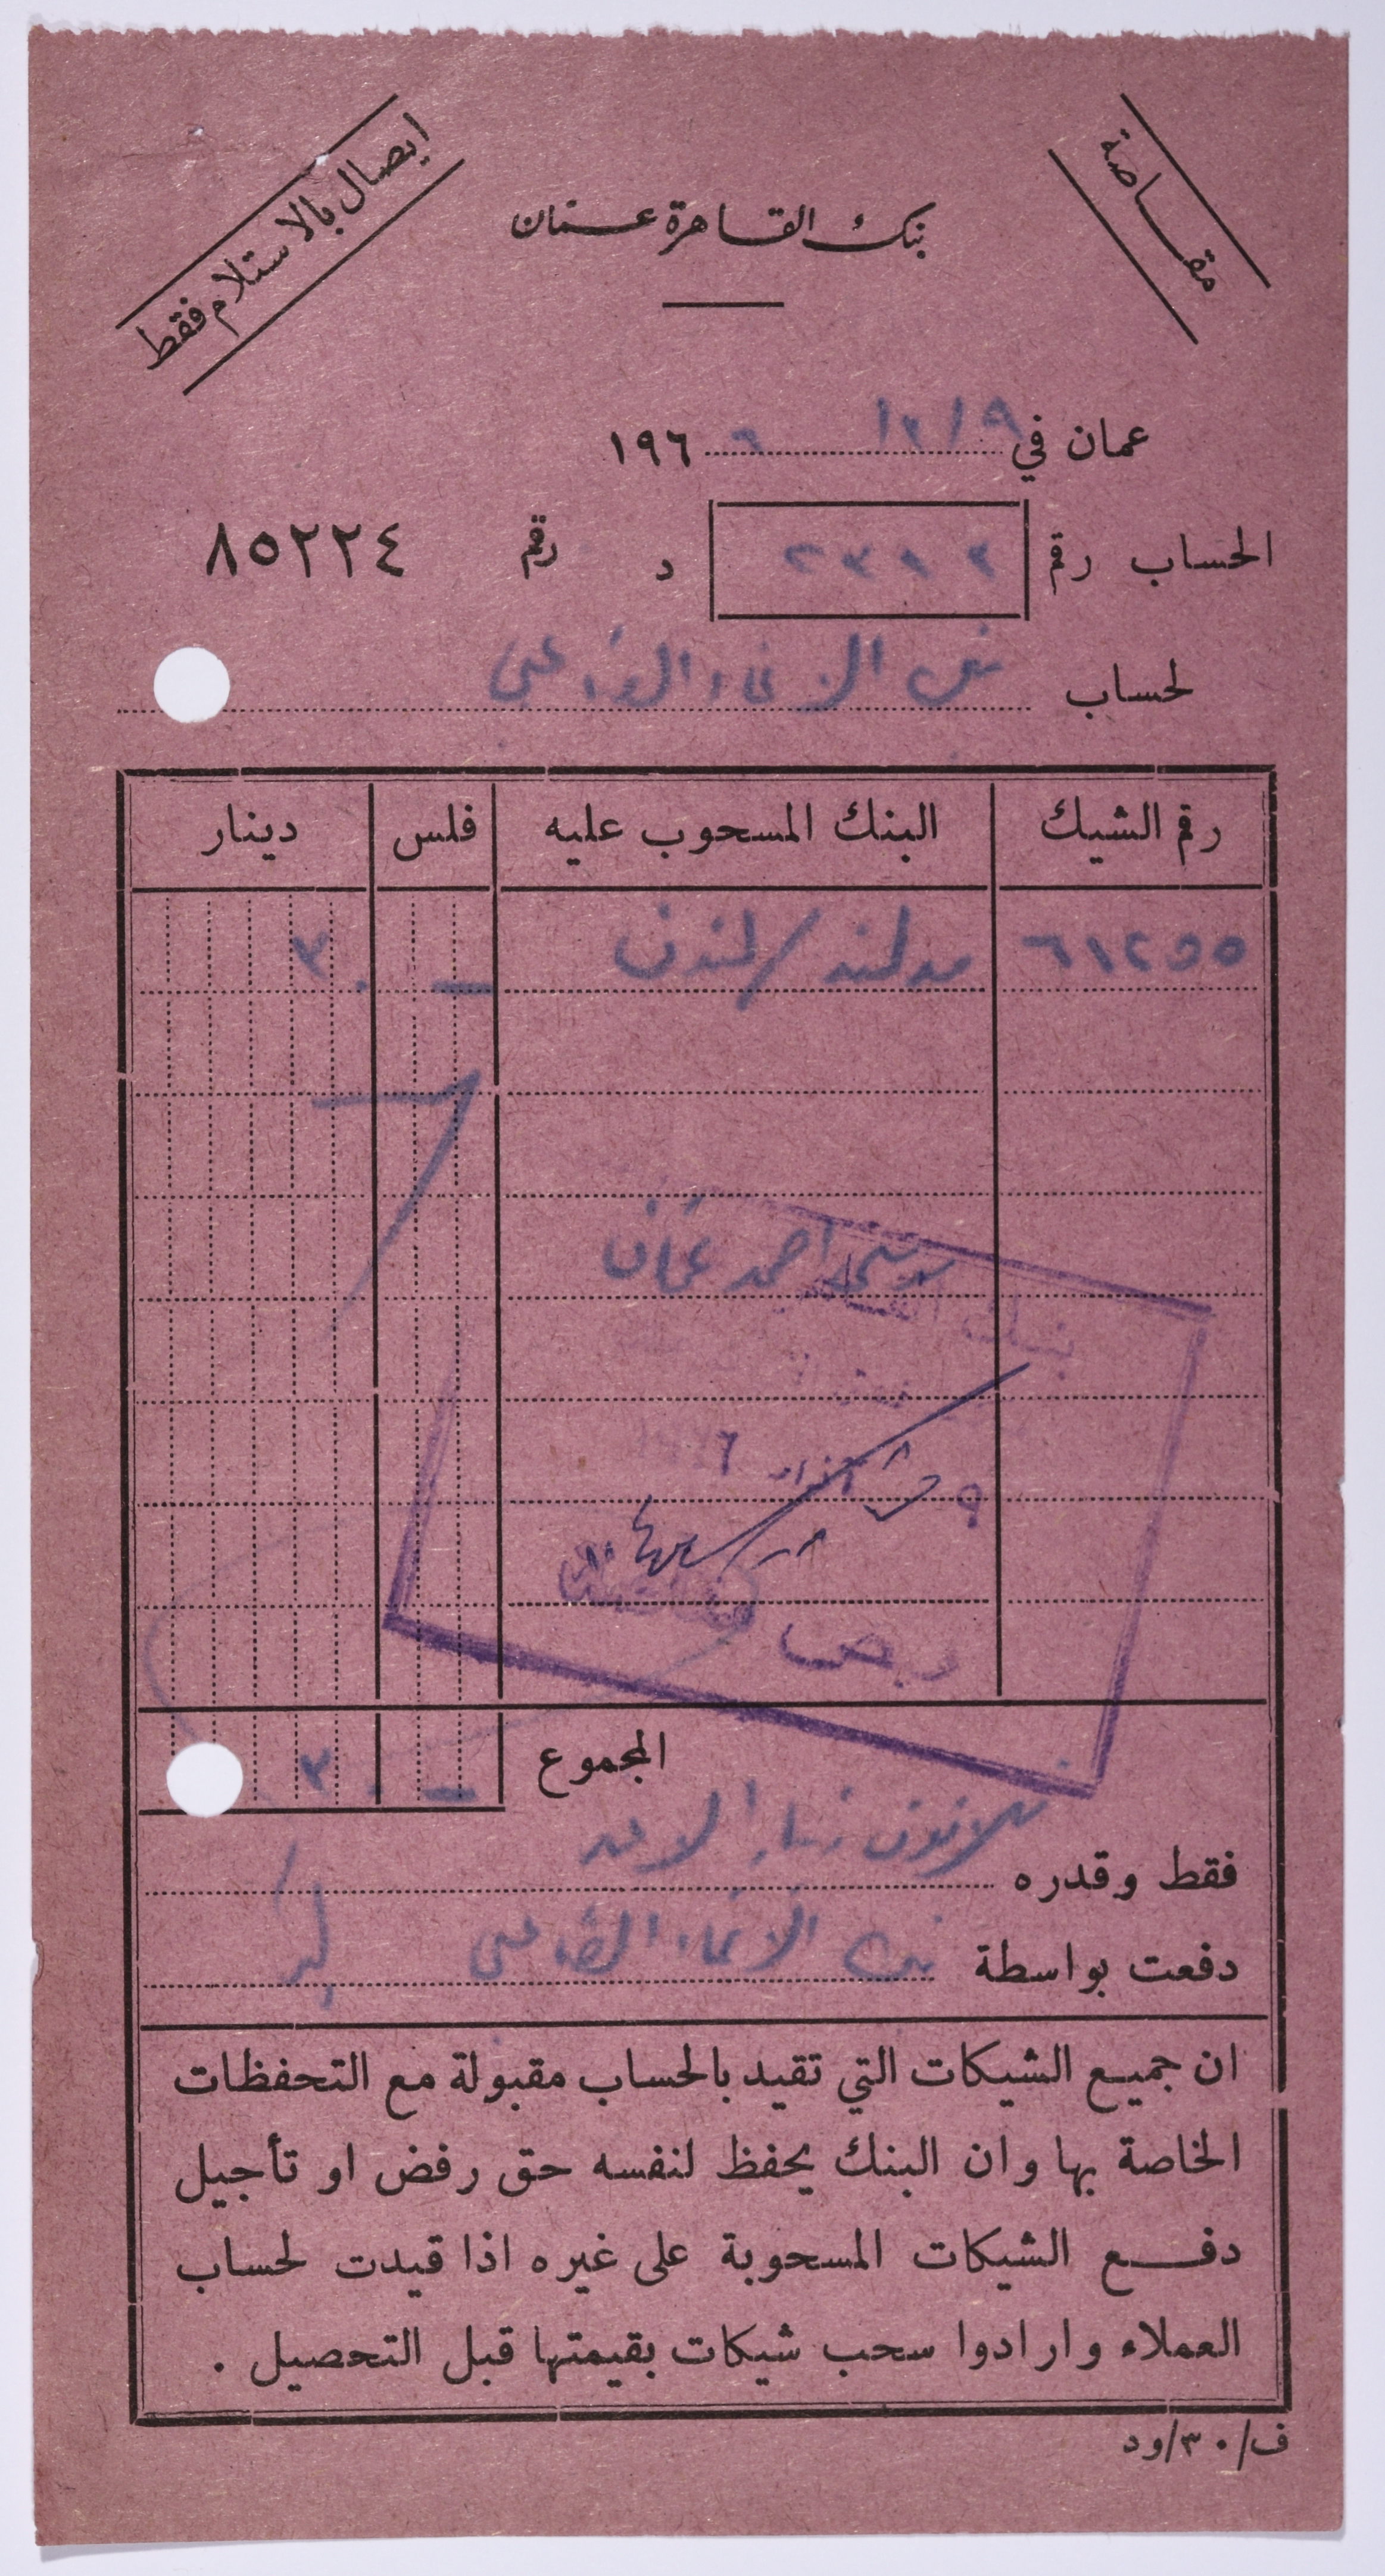 مقاصة
ايصال بالاستلام فقط
بنك القاهرة عمان
عمان في ١٢/٩ ١٩٦٦
الحساب رقم د رقم ٨٥٢٢٤
لحساب الانماء
رقم الشيك البنك المسحوب عليه فلس دينار
٦١٢٥٥ مدلند/لندن — ٣٠
احمد عثمان
المجموع — ٣٠
فقط وقدره ثلاثون دينارا لا غير
دفعت بواسطة بنك الانماء
ان جميع الشيكات التي تقيد بالحساب مقبولة مع التحفظات
الخاصة بها وان البنك يحفظ لنفسه حق رفض او تأجيل
دفع الشيكات المسحوبة على غيره اذا قيدت لحساب
العملاء وارادوا سحب شيكات بقيمتها قبل التحصيل .
ف/٣٠/ود